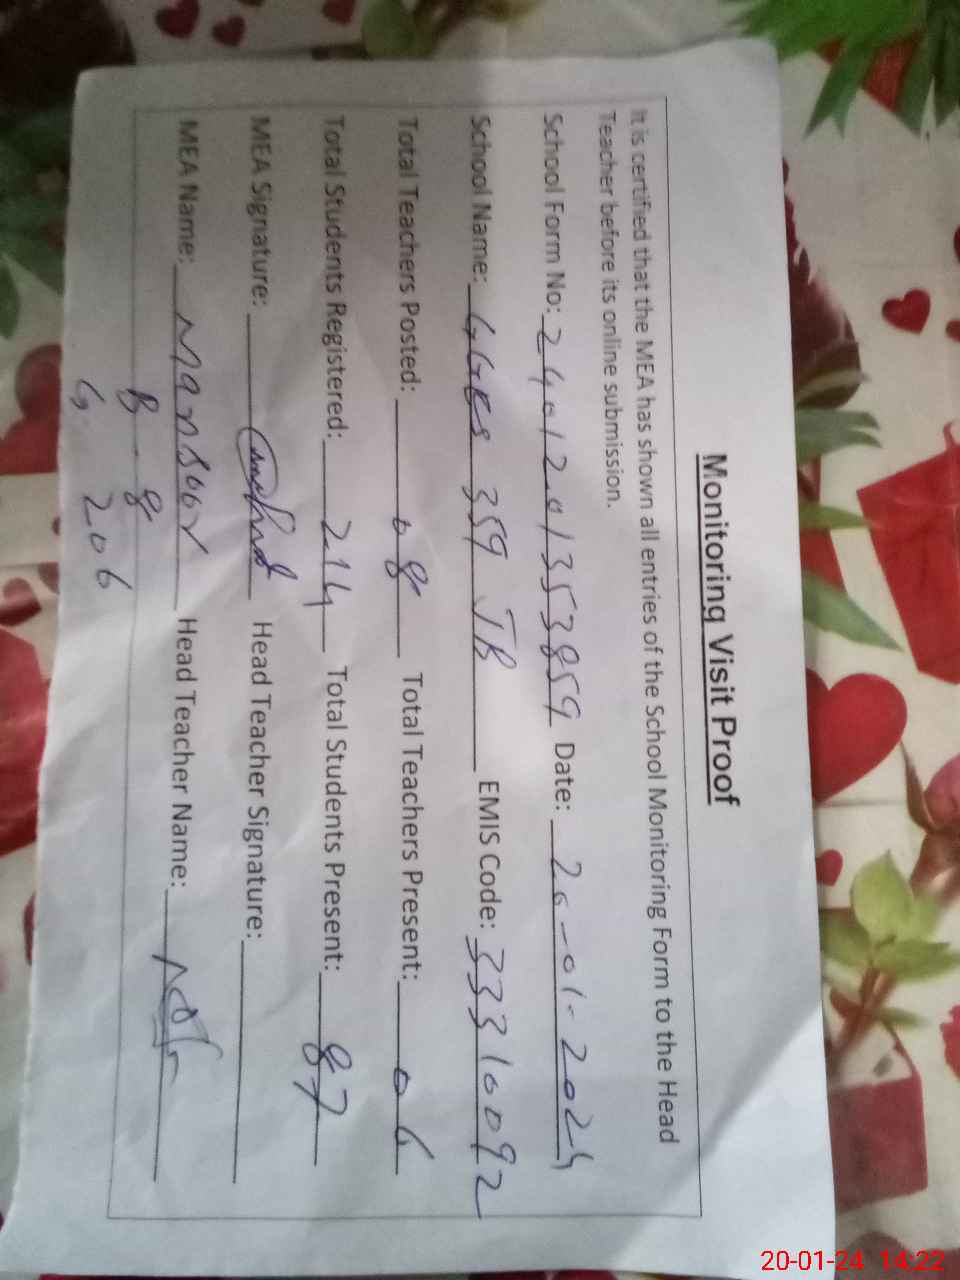 Monitoring Visit Proof
It is certified that the MEA has shown all entries of the School Monitoring Form to the Head
Teacher before its online submission.
School Form No: 2401201353859 Date: 20-01-2024
School Name: GGES 359 JB EMIS Code: 33310092
Total Teachers Posted: 08 Total Teachers Present: 06
Total Students Registered: 214 Total Students Present: 87
MEA Signature: Head Teacher Signature:
MEA Name: Mansoor Head Teacher Name:
B - 8
G 206
20-01-24 14:22